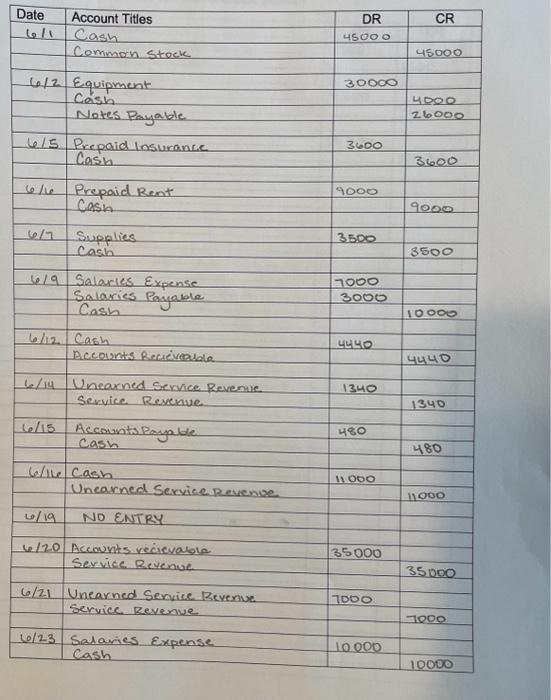 Date Account Titles DR CR
6/1 Cash 45000
Common Stock 45000
6/2 Equipment 30000
Cash 4000
Notes Payable 26000
6/5 Prepaid Insurance 3600
Cash 3600
6/6 Prepaid Rent 9000
Cash 9000
6/7 Supplies 3500
Cash 3500
6/9 Salaries Expense 7000
Salaries Payable 3000
Cash 10000
6/12 Cash 4440
Accounts Recieveable 4440
6/14 Unearned Service Revenue 1340
Service Revenue 1340
6/15 Accounts Payable 480
Cash 480
6/16 Cash 11000
Unearned Service Revenue 11000
6/19 NO ENTRY
6/20 Accounts recievable 35000
Service Revenue 35000
6/21 Unearned Service Revenue 7000
Service Revenue 7000
6/23 Salaries Expense 10000
Cash 10000